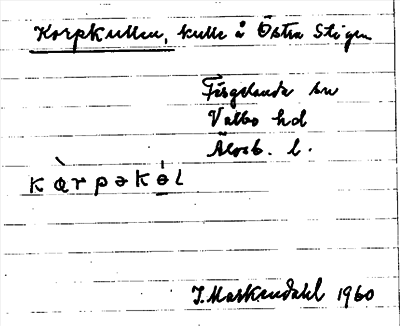 Korpkullen, kulle å Östra Stigen
Färgelanda sn
Valbo hd
Älvsb. l.
kɑ̀rpəkɵ́l
J. Markendahl 1960